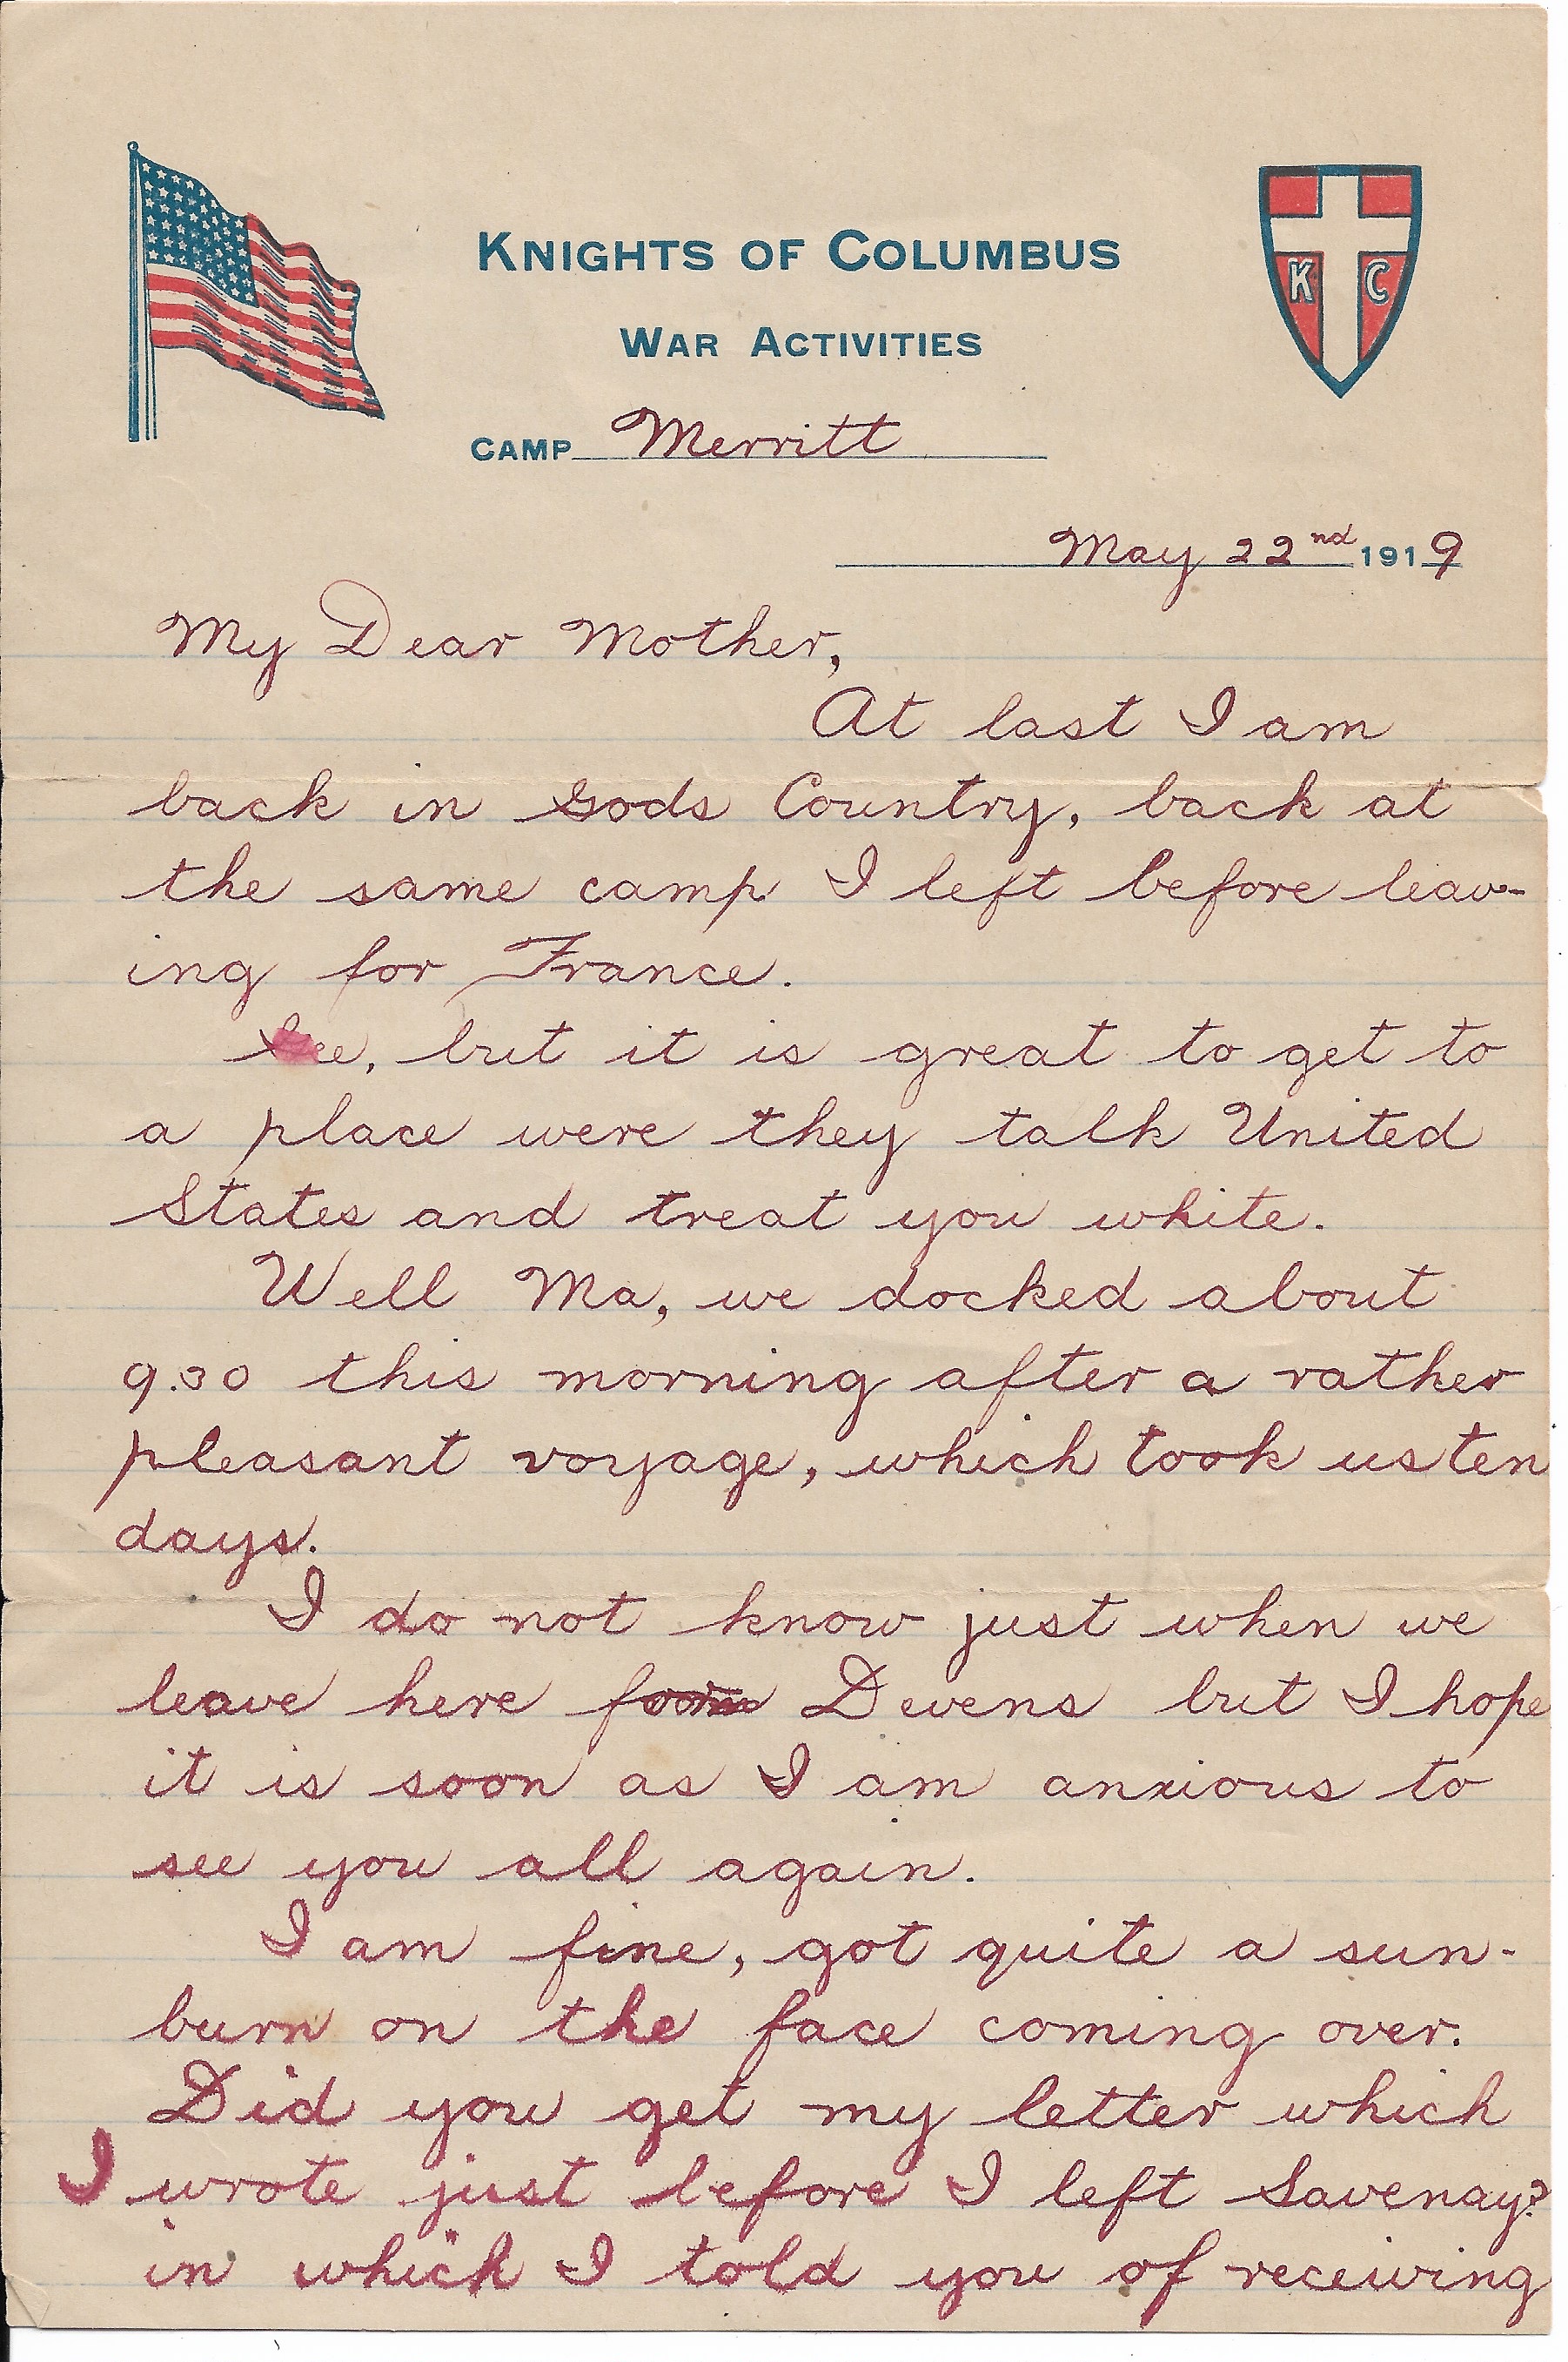 KNIGHTS OF COLUMBUS
WAR ACTIVITIES
K C
CAMP Merritt
May 22nd 1919
My Dear Mother,
At last I am
back in Gods Country, back at
the same camp I left before leav-
ing for France.
Gee, but it is great to get to
a place were they talk United
States and treat you white.
Well Ma, we docked about
9.30 this morning after a rather
pleasant voyage, which took us ten
days.
I do not know just when we
leave here for Devens but I hope
it is soon as I am anxious to
see you all again.
I am fine, got quite a sun-
burn on the face coming over.
Did you get my letter which
I wrote just before I left Savenay?
in which I told you of receiving